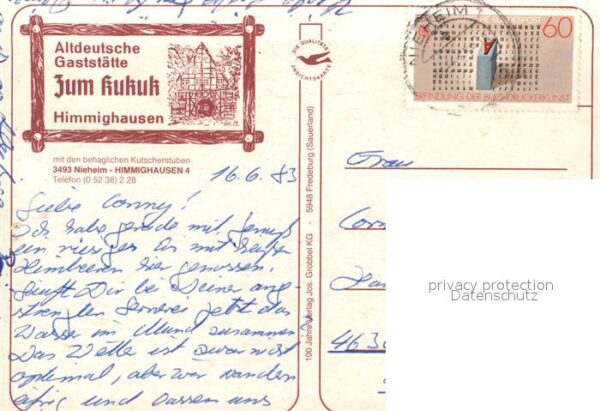 Altdeutsche
Gaststätte
Zum Kukuk
Himmighausen
mit den behaglichen Kutscherstuben
3493 Nieheim - HIMMIGHAUSEN 4
Telefon (0 52 38) 2 28
16.6.83
Liebe Conny!
Ich habe gerade mit Genuß
ein riesiges Eis mit heißen
Himbeeren hier genossen.
Läuft Dir bei Deiner ans-
trengenden Lernerei jetzt das
Wasser im Mund zusammen
Das Wetter ist zwar nicht
optimal, aber wir wandern
eifrig und lassen uns
DIE QUALITÄTS
ANSICHTSKARTE
100 Jahre Verlag Jos. Grobbel KG - 5948 Fredeburg (Sauerland)
NIEHEIM
DEUTSCHE BUNDESPOST 60
ERFINDUNG DER BUCHDRUCKERKUNST
Frau
463
privacy protection
Datenschutz